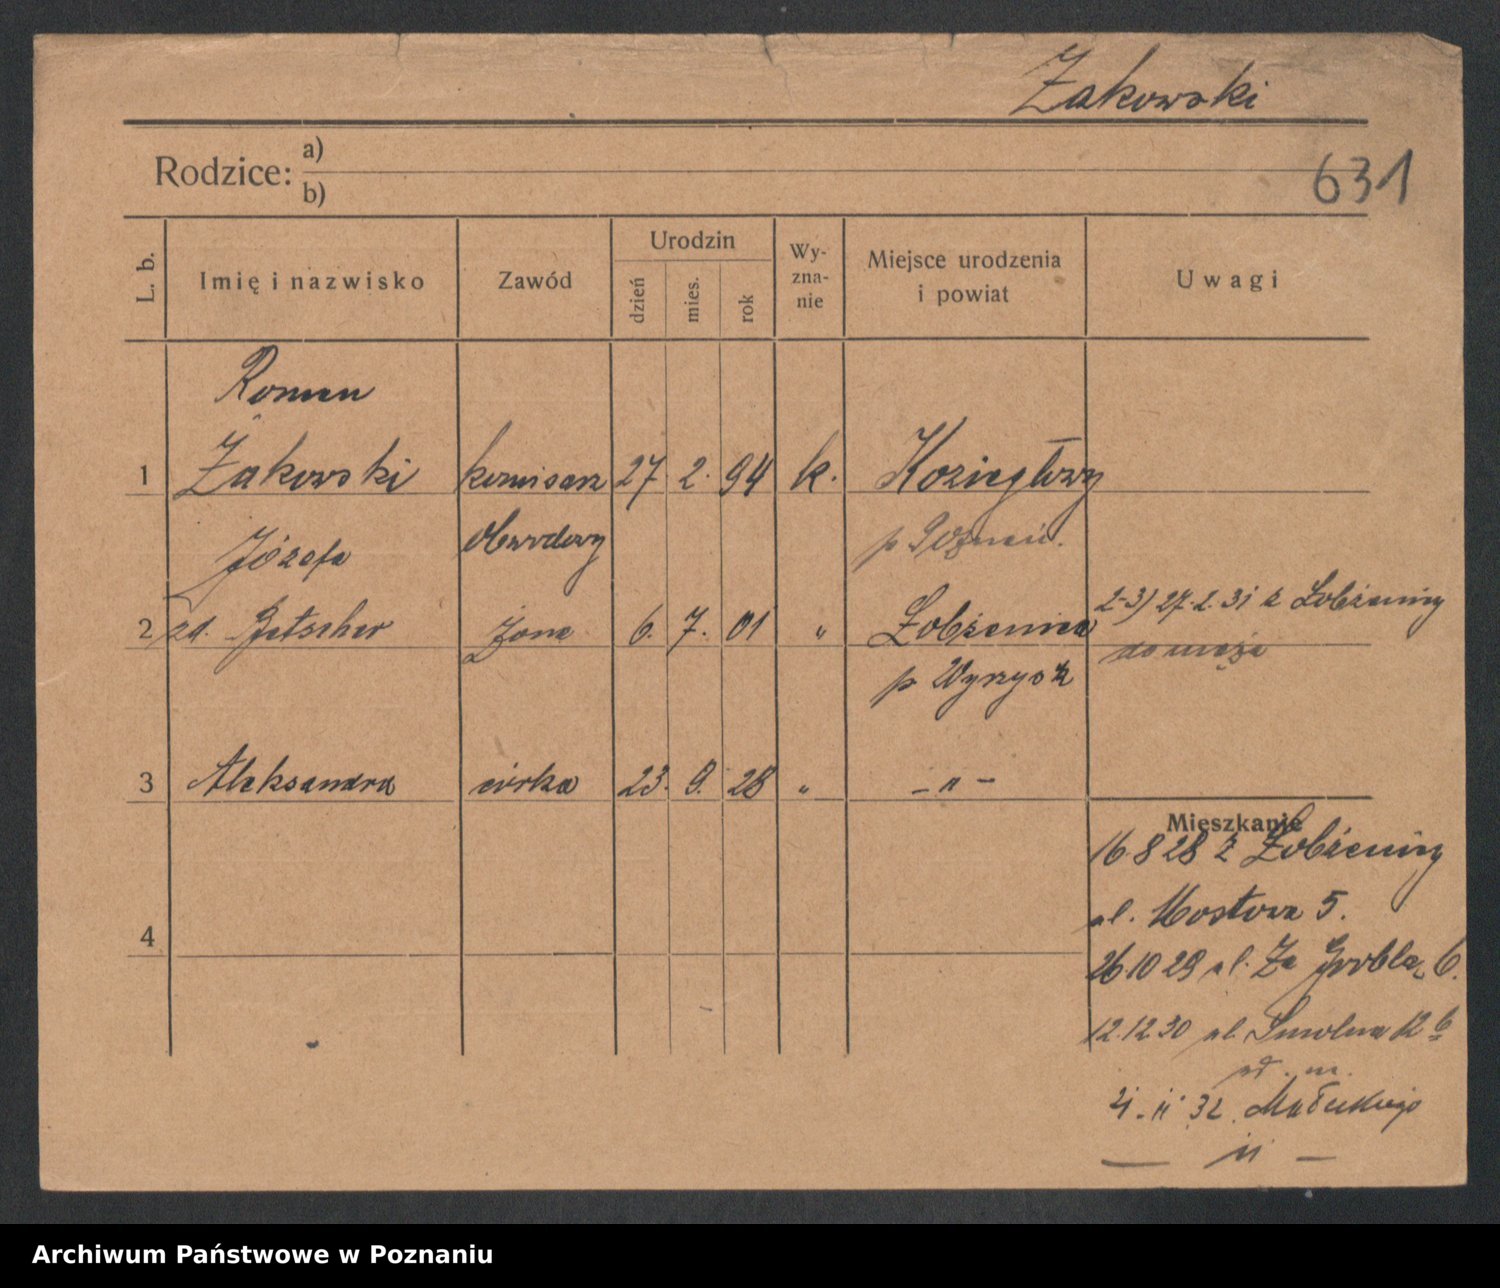 Żakowski
Rodzice: a)
b)
631
L. b.
Imię i nazwisko
Zawód
Urodzin
dzień
mies.
rok
Wy-
zna-
nie
Miejsce urodzenia
i powiat
Uwagi
Roman
1 Żakowski komisarz 27 2. 94 k. Koziegłowy
obwodowy p Poznań.
Józefa
2 zd. Getscher żona 6. 7. 01 " Łobżenica 2-3) 27.2.31 z Łobżenicy
p Wyrzysk do męża
3 Aleksandra córka 23. 9. 28 " - " -
Mieszkanie
16.8 28 z Łobżenicy
ul. Mostowa 5.
4
26.10 29 ul. Za Groblą 6.
12.12.30 ul. Smolna 12 b
4. 11 32. Małeckiego
11
Archiwum Państwowe w Poznaniu